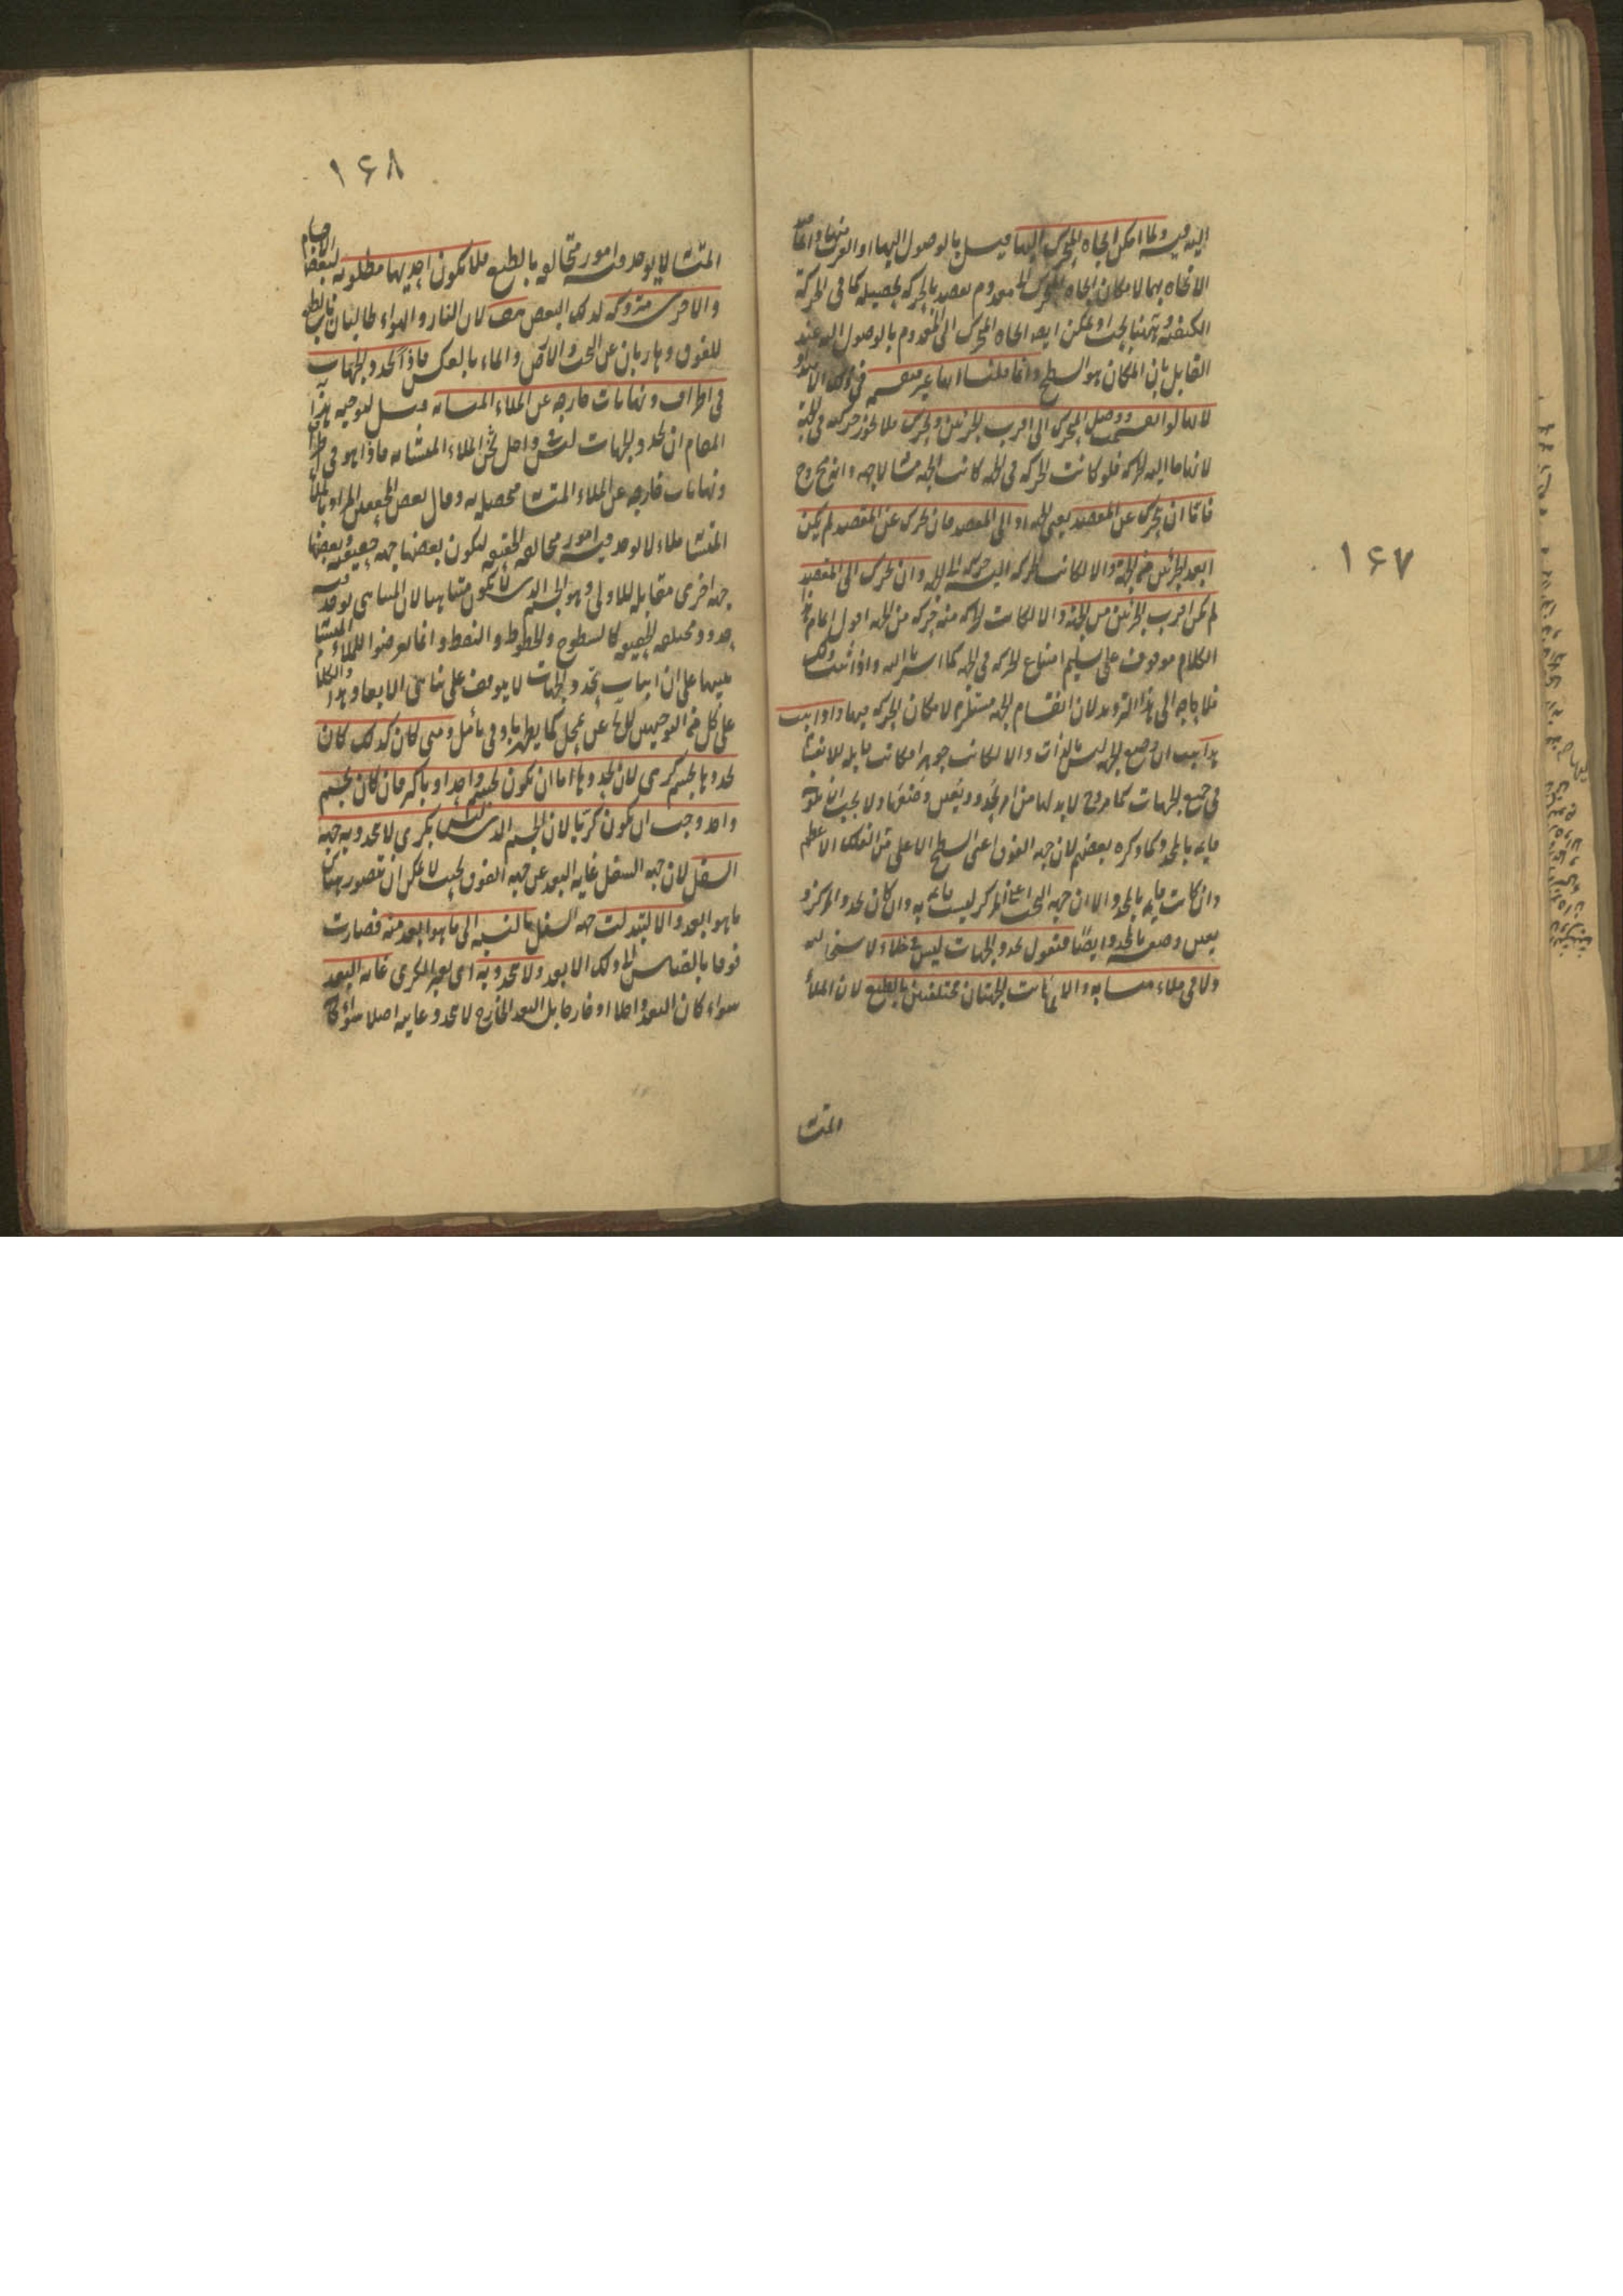 اليه فيه ولما امكن اتجاه المتحرك اليها قيل بالوصول اليها او القرب منها وانما قيد
الاتجاه بهما لامكان اتجاه المتحرك الى معدوم يقصد بالحركة تحصيله كما في الحركة
الكيفية وههنا بحث اذ يمكن ايضا اتجاه المتحرك الى المعدوم بالوصول اليه عند
القايل بان المكان هو السطح وانما قلنا انها غير منقسمة في ذلك الامتداد
لانها لو انقسمت ووصل المتحرك الى اقرب الجزئين وتحرك فلا يجوز حركته في الجهة
لانها ما اليه الحركة فلو كانت الحركة في الجهة كانت الجهة مسافة لا جهة وانه ح
فاما ان يتحرك عن المقصد يعني الجهة او الى المقصد فان تحرك عن المقصد لم يكن
ابعد الجزئين من الجهة والا لكانت الحركة اليه حركة الى الجهة وان تحرك الى المقصد
لم يكن اقرب الجزئين من الجهة والا لكانت الحركة منه حركة من الجهة اقول اتمام هذا
الكلام موقوف على تسليم امتناع الحركة في الجهة كما اشرنا اليه واذا ثبت ذلك
فلا حاجة الى هذا الترديد لان انقسام الجهة مستلزم لامكان الحركة فيها واذا ثبت
هذا ثبت ان وضع الجهة ليس بالذات والا لكانت جوهرا فكانت قابلة للانقسام
في جميع الجهات كما مر وح لا بد لها من امر يحدد ويعين وضعها ولا يجب ان تكون
قايمة بالمحدد كما ذكره بعضهم لان جهة الفوق اعني السطح الاعلى من الفلك الاعظم
وان كانت قايمة بالمحدد الا ان جهة التحت اعني المركز ليست قايمة به وان كان يحدد المركز و
يعين وضعه بالمحدد ايضا فنقول تحدد الجهات ليس في خلاء لاستحالته
ولا في ملاء متشابه والا لما كانت الجهتان مختلفتين بالطبع لان الملأ
المتشا
١۶٧
١۶٨
المتشا لا يوجد فيه امور متخالفة بالطبع فلا يكون احديهما مطلوبة لبعض الاجسام
والاخرى متروكة لذلك البعض هف لان النار والهواء طالبتان بالطبع
للفوق وهاربتان عن التحت والارض والماء بالعكس فاذا تحدد الجهات
في اطراف ونهايات خارجة عن الملاء المتشابه قيل لتوجيه هذا
المقام ان تحدد الجهات ليس في داخل ثخن الملاء المتشابه فاذا هو في اطراف
ونهايات خارجة عن الملاء المتشا محصل به وقال بعض المحققين المراد بالملأ
المتشا ملاء لا يوجد فيه امور متخالفة الحقيقة ليكون بعضها جهة حقيقية وبعضها
جهة اخرى مقابلة للاولى وهو الجسم الذي لا يكون متناهيا لان المتناهي يوجد فيه
حدود مختلفة الحقيقة كالسطوح والخطوط والنقط وانما تعرضوا للملاء المتشا
تنبيها على ان اثبات تحدد الجهات لا يتوقف على تناهي الابعاد وهذا الكلام
على كل من التوجيهين لا يخ عن تمحل كما يظهر بادنى تأمل ومتى كان كذلك كان
تحددها بجسم كري لان تحددها اما ان يكون بجسم واحد او باكثر فان كان بجسم
واحد وجب ان يكون كريا لان الجسم الذي ليس بكري لا تتحدد به جهة
السفل لان جهة السفل غاية البعد عن جهة الفوق بحيث لا يمكن ان يتصور هناك
ما هو ابعد والا لتبدلت جهة السفل بالنسبة الى ما هو ابعد منه فصارت
فوقا بالقياس الى ذلك الابعد ولا تتحدد به اي بغير الكري غاية البعد
سواء كان البعد داخلا او خارجا بل البعد الخارج لا تتحدد غايته اصلا سواء كا